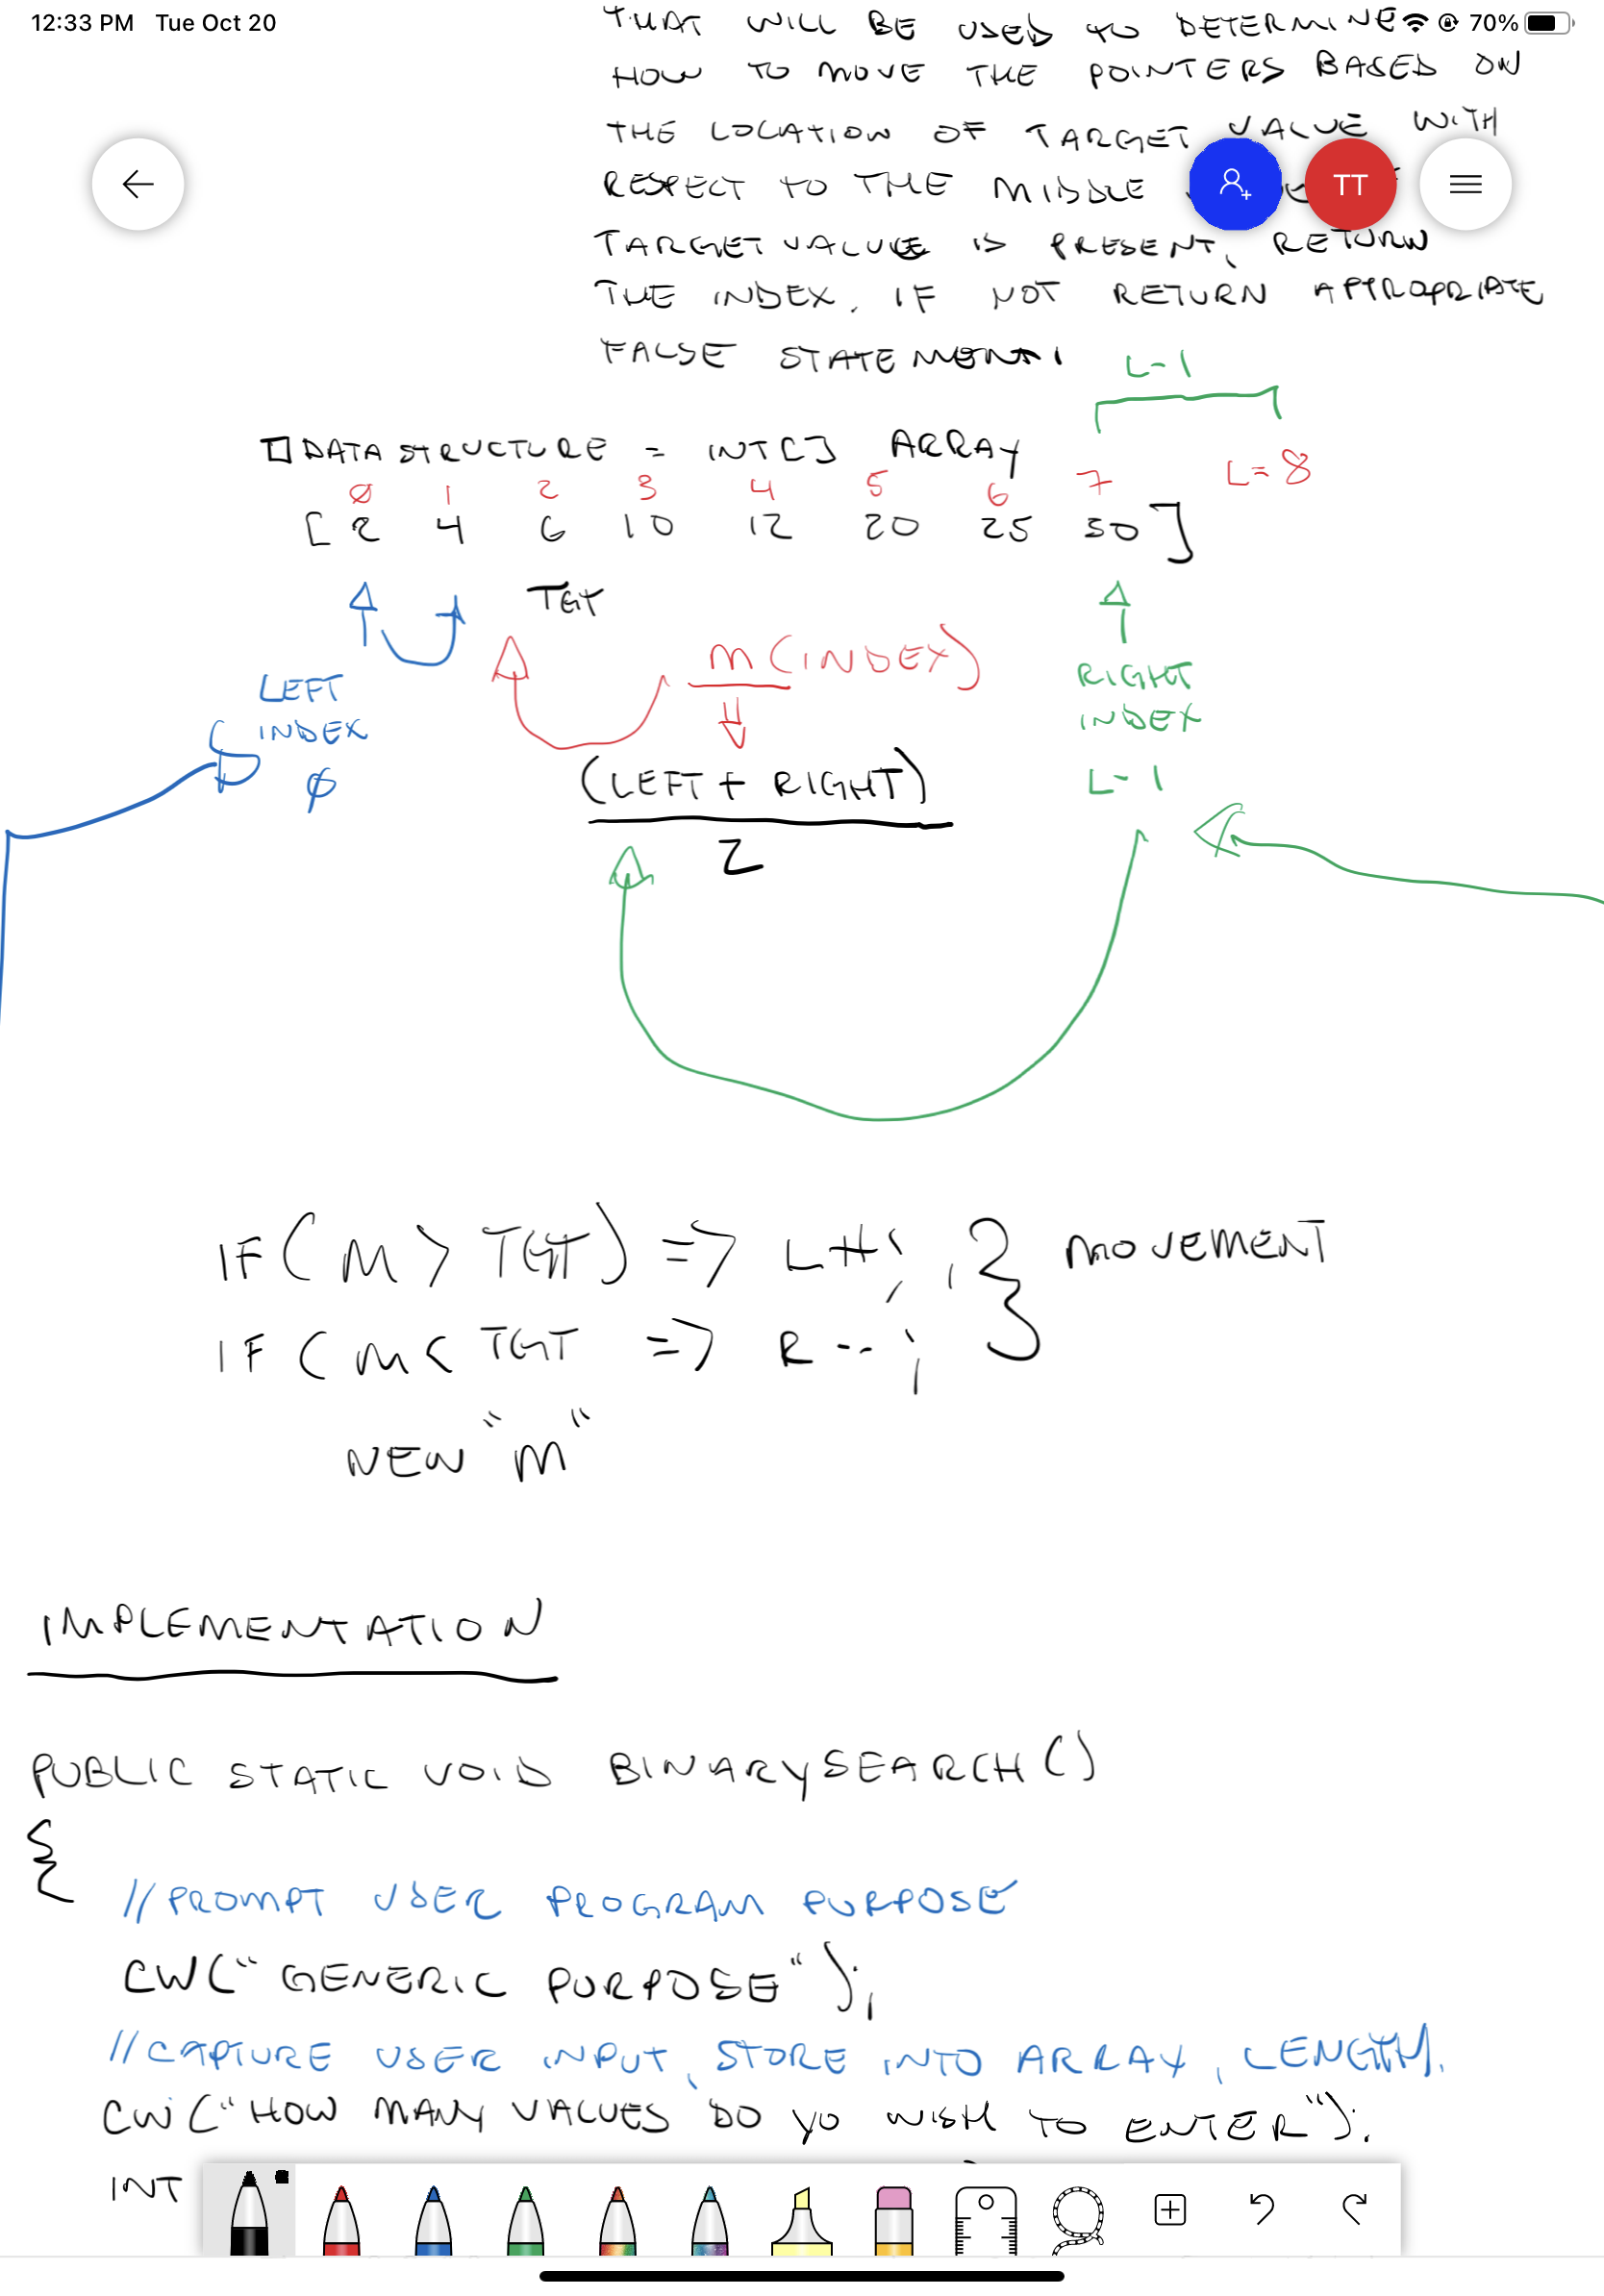 12:33 PM Tue Oct 20 70%
THAT WILL BE USED TO DETERMINE
HOW TO MOVE THE POINTERS BASED ON
THE LOCATION OF TARGET VALUE WITH
RESPECT TO THE MIDDLE
TT
TARGET VALUE IS PRESENT, RETURN
THE INDEX. IF NOT RETURN APPROPRIATE
FALSE STATEMENT
L-1
DATA STRUCTURE = INT[] ARRAY
L=8
0 1 2 3 4 5 6 7
[2 4 6 10 12 20 25 30]
TGT
M(INDEX)
LEFT
INDEX
0
RIGHT
INDEX
L-1
(LEFT + RIGHT)
2
IF (M > TGT) => L++; } MOVEMENT
IF (M < TGT => R--;
NEW "M"
IMPLEMENTATION
PUBLIC STATIC VOID BINARYSEARCH()
{
//PROMPT USER PROGRAM PURPOSE
CW("GENERIC PURPOSE");
//CAPTURE USER INPUT, STORE INTO ARRAY, LENGTH.
CW("HOW MANY VALUES DO YO WISH TO ENTER");
INT